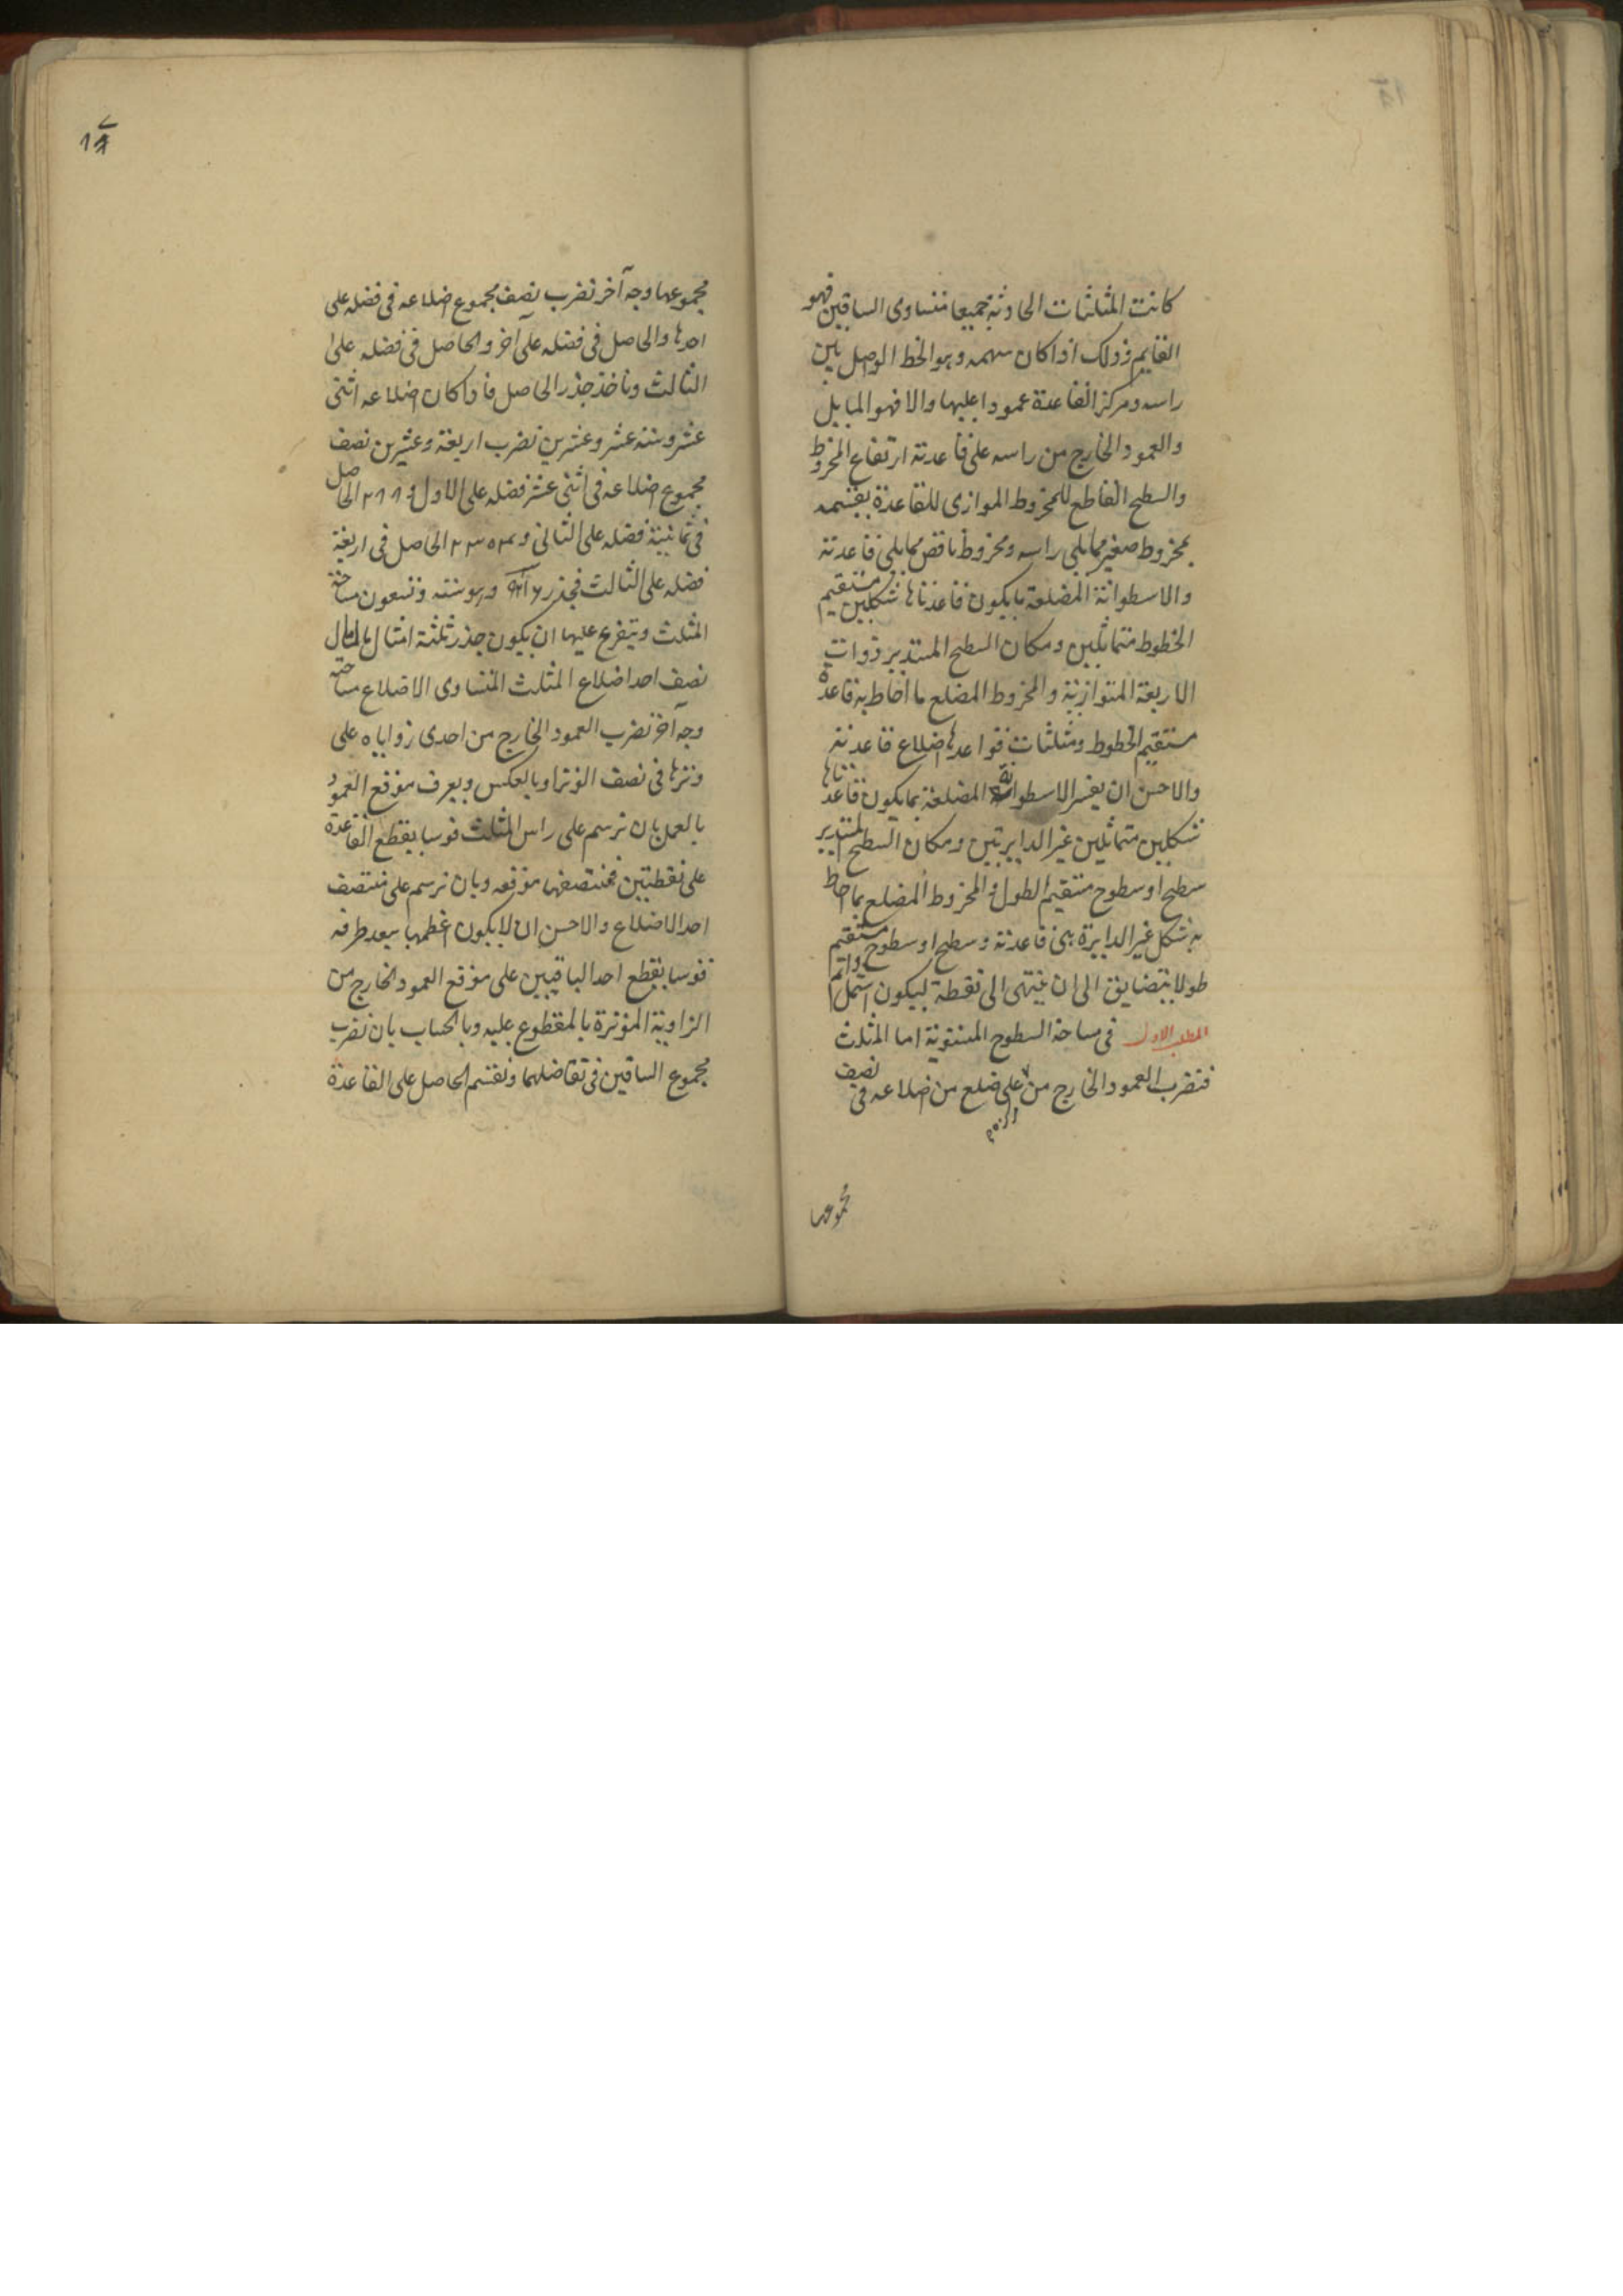 كانت المثلثات الحادثة جميعا متساوى الساقين فهو
القايم وذلك اذا كان سهمه وهو الخط الواصل بين
راسه ومركز القاعدة عمودا عليها والا فهو المايل
والعمود الخارج من راسه على قاعدته ارتفاع المخروط
والسطح القاطع للمخروط الموازى للقاعدة يقسمه
بمخروط صغير مما يلى راسه ومخروط ناقص مما يلى قاعدته
والاسطوانة المضلعة ما يكون قاعدتاها شكلين مستقيم
الخطوط متماثلين ومكان السطح المستدير ذوات
الاربعة المتوازية والمخروط المضلع ما احاط به قاعدة
مستقيم الخطوط ومثلثات قواعدها اضلاع قاعدته
والاحسن ان يفسر الاسطوانة المضلعة بما يكون قاعدتاها
شكلين متماثلين غير الدايرتين ومكان السطح المستدير
سطح او سطوح مستقيم الطول والمخروط المضلع بما احاط
به شكل غير الدايرة هى قاعدته وسطح او سطوح مستقيم
طولا يتضايق الى ان ينتهى الى نقطة ليكون اشمل واتم
المطلب الاول فى مساحة السطوح المستوية اما المثلث
فتضرب العمود الخارج من على ضلع من اضلاعه فى نصف
مجموعها
١٧
مجموعها وجه آخر نضرب نصف مجموع اضلاعه فى فضله على
احدها والحاصل فى فضله على آخر والحاصل فى فضله على
الثالث وناخذ جذر الحاصل فاذا كان اضلاعه اثنى
عشر وستة عشر وعشرين نضرب اربعة وعشرين نصف
مجموع اضلاعه فى اثنى عشر فضله على الاول الحاصل
فى ثمانية فضله على الثانى و الحاصل فى اربعة
فضله على الثالث فجذر وهو ستة وتسعون مساحة
المثلث ويتفرع عليها ان يكون جذر ثلثة امثال مال مال
نصف احد اضلاع المثلث المتساوى الاضلاع مساحته
وجه آخر نضرب العمود الخارج من احدى زواياه على
وترها فى نصف الوتر او بالعكس ويعرف موقع العمود
بالعمل بان نرسم على راس المثلث قوسا يقطع القاعدة
على نقطتين فمنتصفها موقعه وبان نرسم على منتصف
احد الاضلاع والاحسن ان لا يكون اعظمها ببعد طرفه
قوسا يقطع احد الباقيين على موقع العمود الخارج من
الزاوية الموترة بالمقطوع عليه وبالحساب بان نضرب
مجموع الساقين فى تفاضلهما ونقسم الحاصل على القاعدة